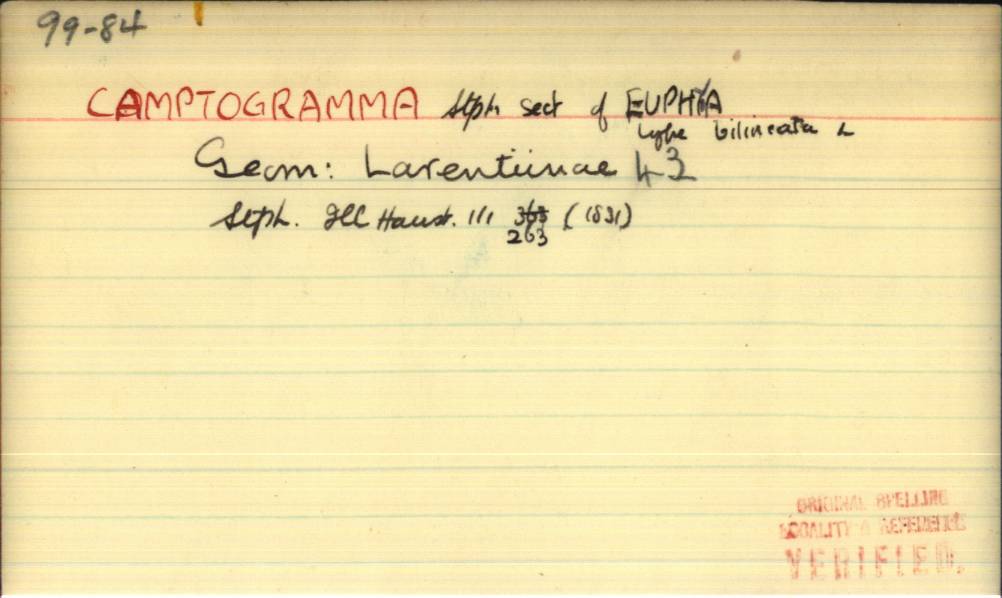 99-84
CAMPTOGRAMMA Stph sect of EUPHIA
type bilineata L
Geom: Larentiinae 43
Stph. Ill Haust. III 368 (1831)
263
ORIGINAL SPELLING
LOCALITY & REFERENCE
VERIFIED.